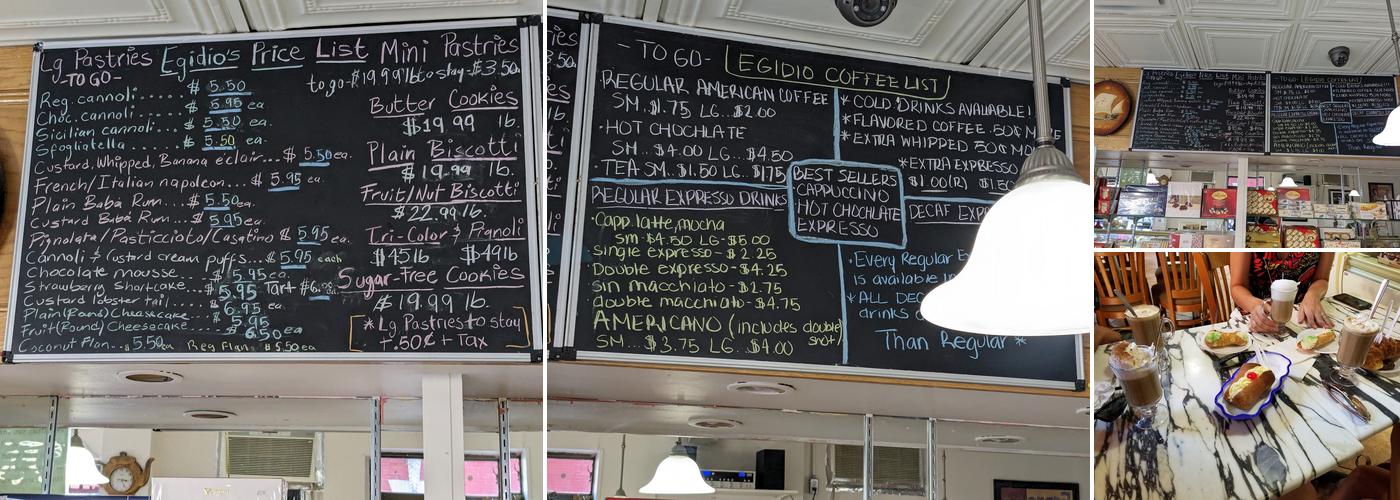 Lg Pastries Egidio's Price List Mini Pastries
-TO GO-
to go-$19.99lb to stay-$3.50a
Reg. cannoli..... $ 5.50
Choc. cannoli.... $ 5.95 ea
Sicilian cannoli... $ 5.50 ea.
Sfogliatella... $ 5.50 ea.
Custard, Whipped, Banana e'clair... $ 5.50 ea.
French/Italian napoleon... $ 5.95 ea.
Plain Babá Rum... $ 5.50 ea.
Custard Babá Rum... $ 5.95 ea.
Pignolata/Pasticciato/Casatino $ 5.95 ea.
Cannoli & custard cream puffs... $ 5.95 each
Chocolate mousse... $ 5.95 ea.
Strawberry Shortcake... $ 5.95 Tart
Custard lobster tail... $ 6.95 ea.
Plain (Round) Cheesecake... $ 5.95
Fruit (Round) Cheesecake... $ 6.50 ea
Coconut Flan... $5.50ea Reg Flan. $5.50ea
Butter Cookies
$19.99 lb.
Plain Biscotti
$19.99 lb.
Fruit/Nut Biscotti
$22.99 lb.
Tri-Color & Pignoli
$45 lb $49 lb
Sugar-Free Cookies
$19.99 lb.
*Lg. Pastries to stay
+.50¢ + Tax
-TO GO- EGIDIO COFFEE LIST
REGULAR AMERICAN COFFEE
SM..$1.75 LG...$2.00
·HOT CHOCHLATE
SM...$4.00 LG...$4.50
TEA SM.$1.50 LG...$1.75
REGULAR EXPRESSO DRINKS
·Capp, latte, mocha
Sm-$4.50 LG-$5.00
single expresso-$2.25
Double expresso-$4.25
sin macchiato-$2.75
double macchiato-$4.75
AMERICANO (includes double shot)
SM...$3.75 LG...$4.00
BEST SELLERS
CAPPUCCINO
HOT CHOCHLATE
EXPRESSO
*COLD DRINKS AVAILABLE!
*FLAVORED COFFEE .50¢ MORE
*EXTRA WHIPPED 50¢ MORE
*EXTRA EXPRESSO
$1.00(R)
DECAF
·Every Regular
is available
*ALL
drinks
Than Regular*